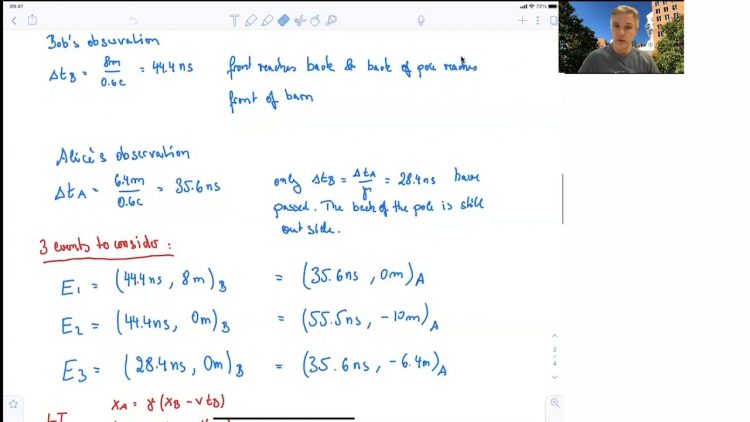 09:41
72%
Bob's observation
Δt_B = 8m/0.6c = 44.4 ns front reaches back & back of pole reaches
front of barn
Alice's observation
Δt_A = 6.4m/0.6c = 35.6 ns only Δt_B = Δt_A/γ = 28.4 ns have
passed. The back of the pole is still
outside.
3 events to consider:
E₁ = (44.4 ns, 8m)_B = (35.6 ns, 0m)_A
E₂ = (44.4 ns, 0m)_B = (55.5 ns, -10m)_A
E₃ = (28.4 ns, 0m)_B = (35.6 ns, -6.4m)_A
2
/
4
LT x_A = γ(x_B - v t_B)